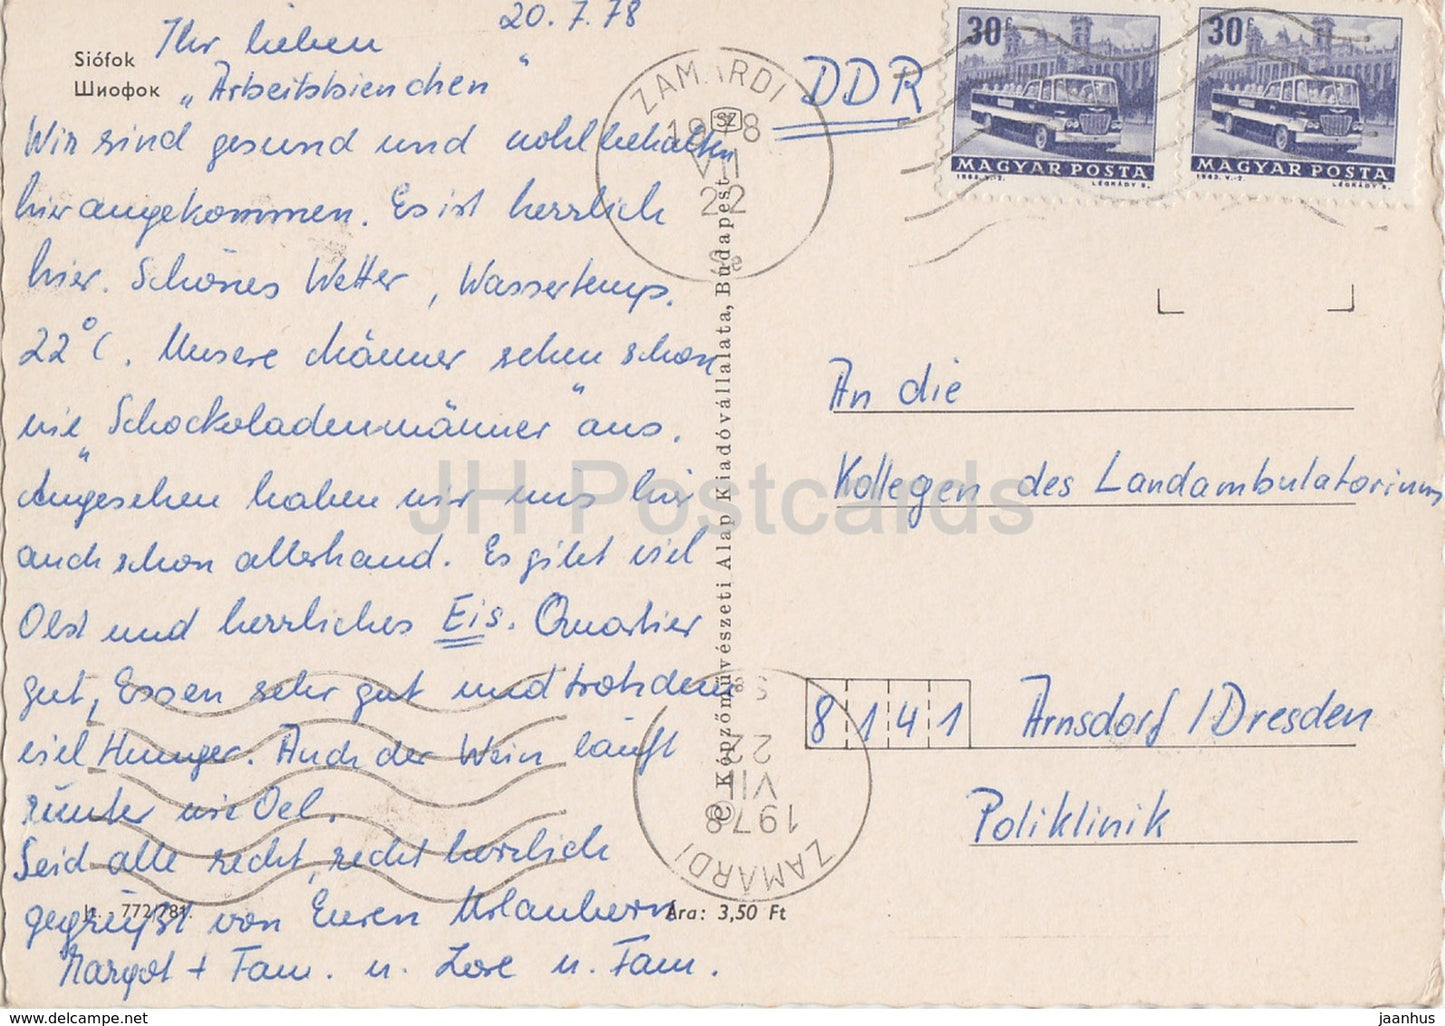 20.7.78
Ihr lieben
„Arbeitsbienchen"
Siófok
Шиофок
Wir sind gesund und wohlbehalten
hier angekommen. Es ist herrlich
hier. Schönes Wetter, Wassertemp.
22°C. Unsere Männer sehen schon
wie „Schockoladenmänner" aus.
Angesehen haben wir uns hier
auch schon allerhand. Es gibt viel
Obst und herrliches Eis. Quartier
gut, Essen sehr gut und trotzdem
viel Hunger. Auch der Wein läuft
runter wie Oel.
Seid alle recht, recht herzlich
gegrüßt von Euren Urlaubern
Margot + Fam. u. Lore u. Fam.
772/781.
Ára: 3,50 Ft
© Képzőművészeti Alap Kiadóvállalata, Budapest
SZ
ZAMÁRDI
1978
VII
22
DDR
30f
MAGYAR POSTA
1963. V.-2. LÉGRÁDY S.
30f
MAGYAR POSTA
1963. V.-2. LÉGRÁDY S.
An die
Kollegen des Landambulatoriums
8141 Arnsdorf / Dresden
Poliklinik
ZAMÁRDI
1978
VII
22
JH Postcards
https://www.ebay.com/usr/jaanhus
jaanhus